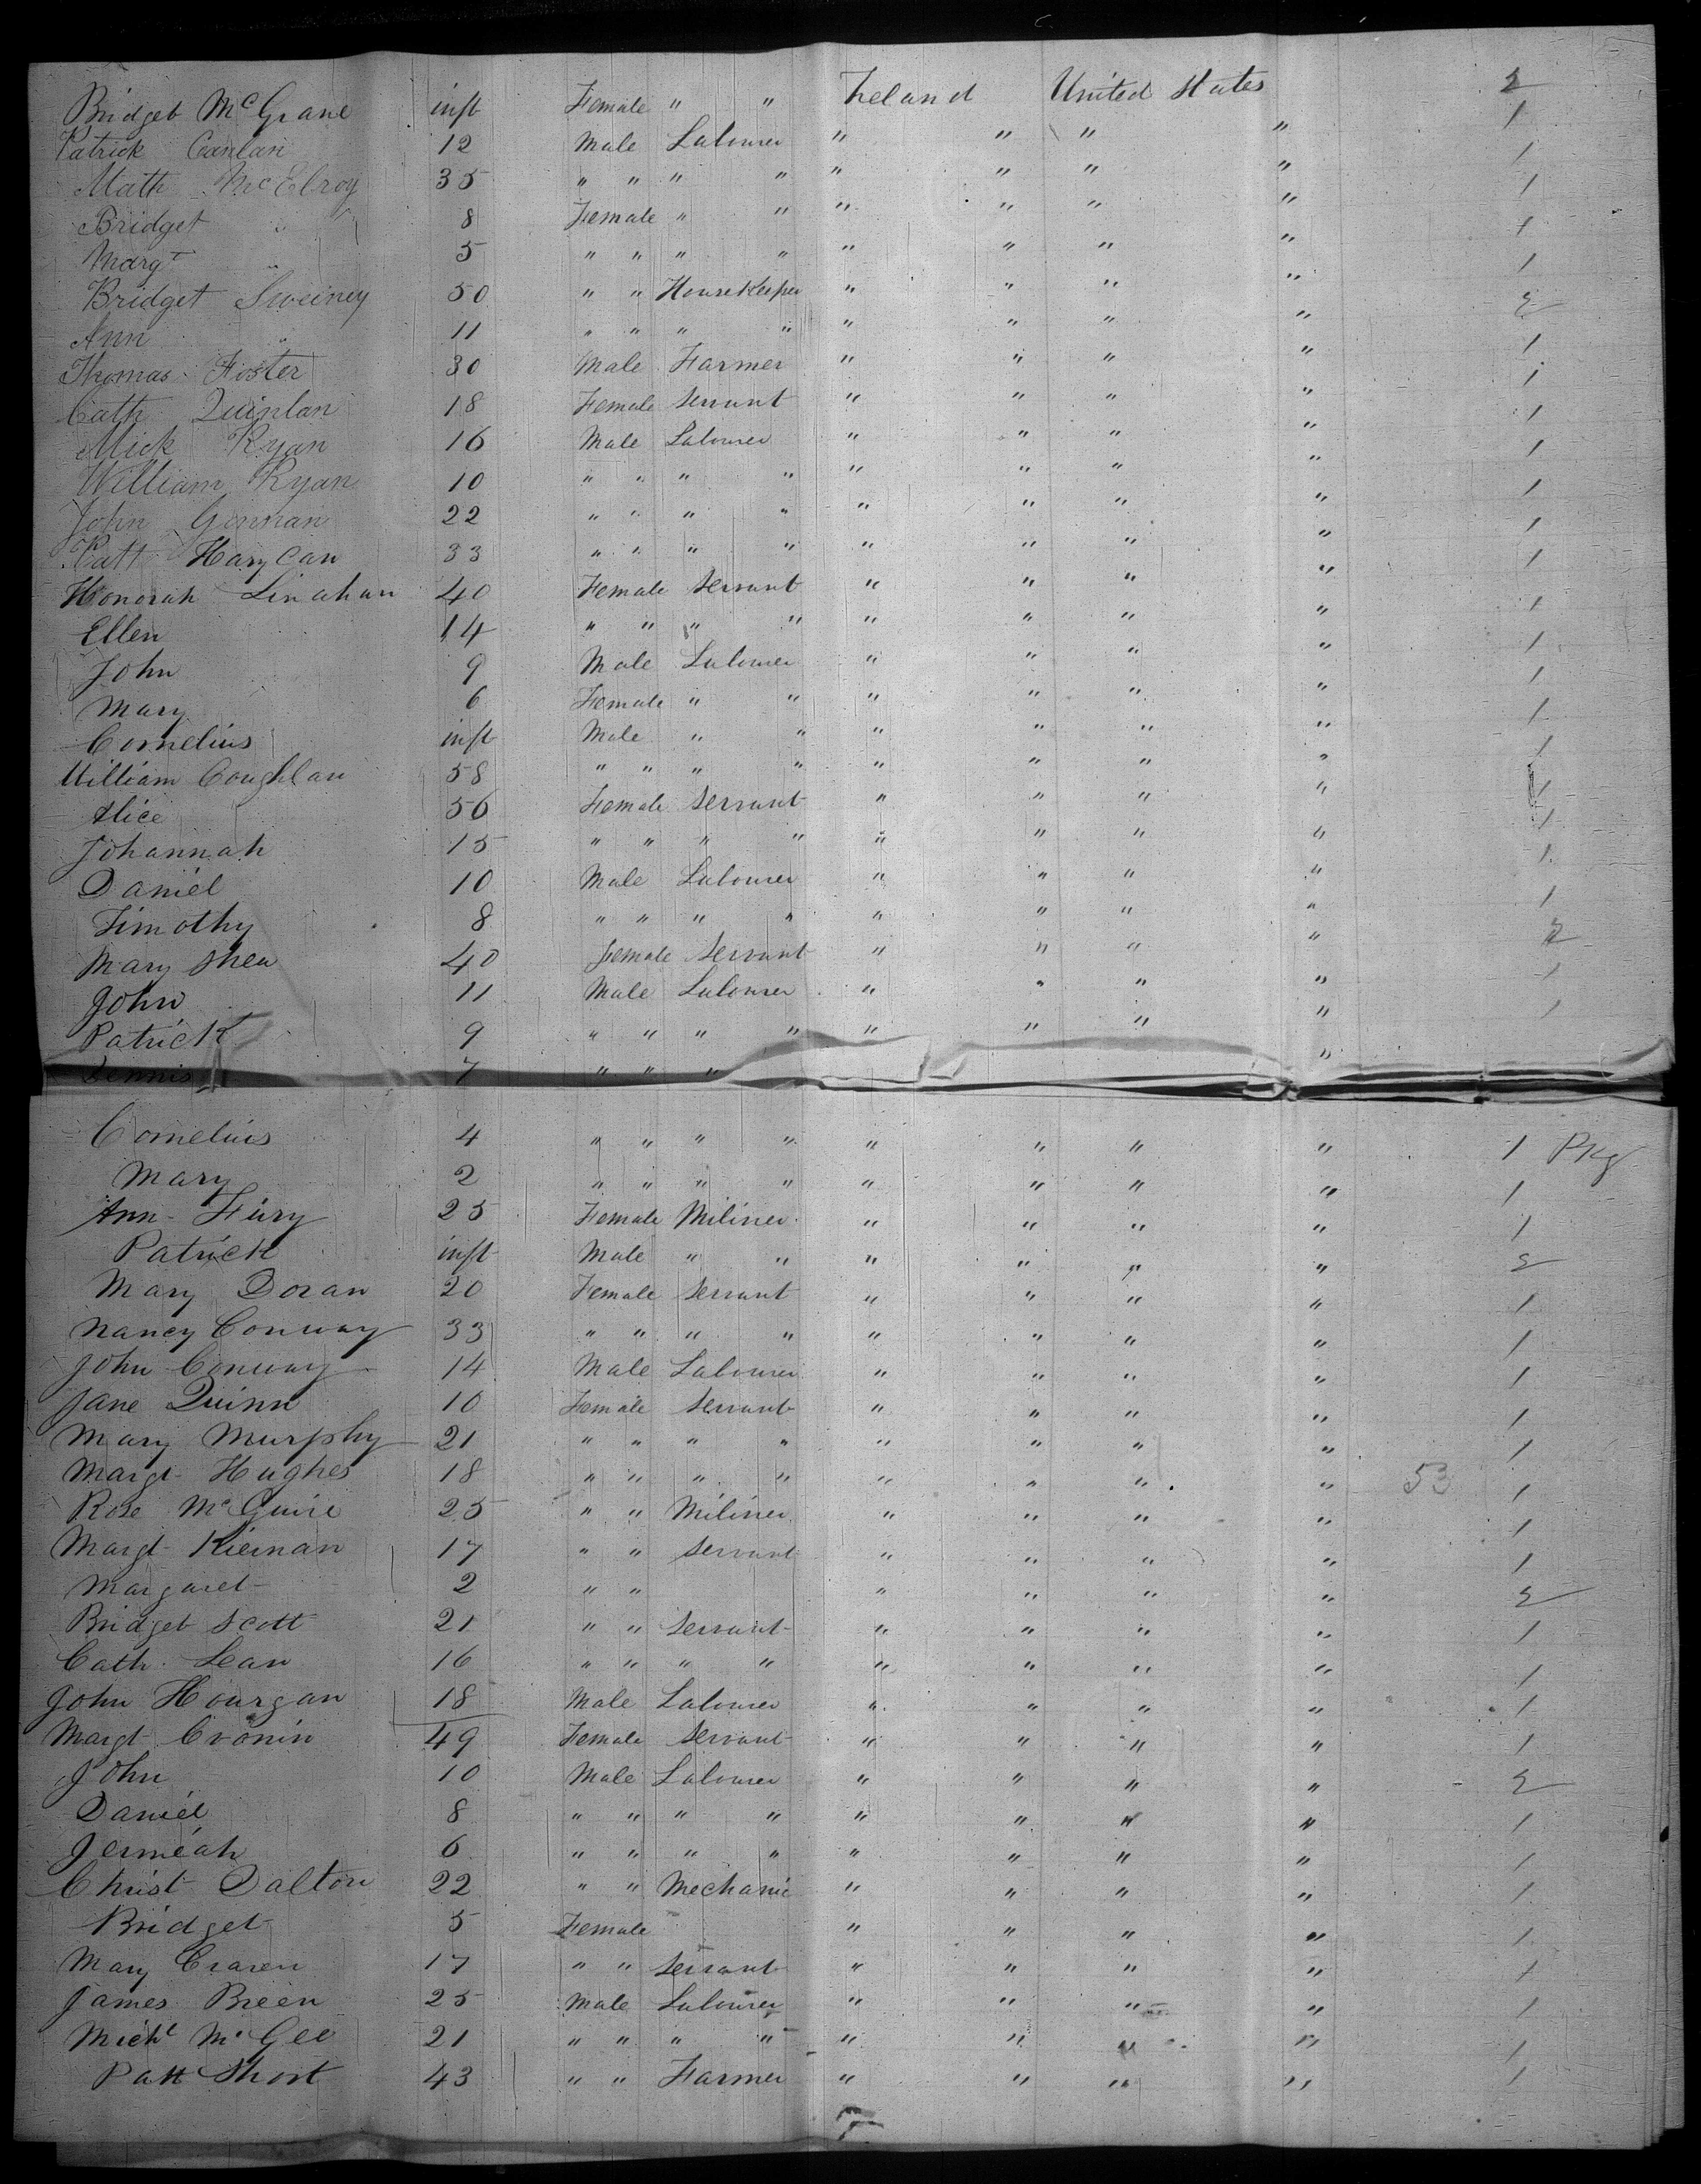 Bridget McGrane inft Female " " Ireland United States 2
Patrick Canlan 12 Male Labourer " " " " 1
Math McElroy 35 " " " " " " " " 1
Bridget " 8 Female " " " " " " 1
Margt " 5 " " " " " " " " 1
Bridget Sweiney 50 " " HouseKeeper " " " " 1
Ann " 11 " " " " " " " " 2
Thomas Foster 30 Male Farmer " " " " 1
Cath Quinlan 18 Female Servant " " " " 1
Mick Ryan 16 Male Labourer " " " " 1
William Ryan 10 " " " " " " " " 1
John Gorman 22 " " " " " " " " 1
Patt Harycan 33 " " " " " " " " 1
Honorah Linahan 40 Female Servant " " " " 1
Ellen 14 " " " " " " " " 1
John 9 Male Labourer " " " " 1
Mary 6 Female " " " " " " 1
Cornelius inft Male " " " " " " 1
William Coughlan 58 " " " " " " " " 1
Alice 56 Female Servant " " " " 1
Johannah 15 " " " " " " " " 1
Daniel 10 Male Labourer " " " " 1
Timothy 8 " " " " " " " " 1
Mary Shea 40 Female Servant " " " " 2
John 11 Male Labourer " " " " 1
Patrick 9 " " " " " " " " 1
Dennis 7 " " " "
Cornelius 4 " " " " " " " " 1 Pkg
Mary 2 " " " " " " " " 1
Ann Fury 25 Female Miliner " " " " 1
Patrick inft Male " " " " " " 2
Mary Doran 20 Female Servant " " " " 1
Nancy Conway 33 " " " " " " " " 1
John Conway 14 Male Labourer " " " " 1
Jane Quinn 10 Female Servant " " " " 1
Mary Murphy 21 " " " " " " " " 1
Margt Hughes 18 " " " " " " " " 53 1
Rose McGuire 25 " " Miliner " " " " 1
Margt Kiernan 17 " " Servant " " " " 1
Margaret 2 " " " " " " 2
Bridget Scott 21 " " Servant " " " " 1
Cath. Lean 16 " " " " " " " " 1
John Hourgan 18 Male Labourer " " " " 1
Margt Cronin 49 Female Servant " " " " 1
John 10 Male Labourer " " " " 2
Daniel 8 " " " " " " " " 1
Jermeah 6 " " " " " " " " 1
Christ Dalton 22 " " Mechanic " " " " 1
Bridget 5 Female " " " " 1
Mary Craven 17 " " Servant " " " " 1
James Breen 25 Male Labourer " " " " 1
Michl McGee 21 " " " " " " " " 1
Patt Short 43 " " Farmer " " " " 1